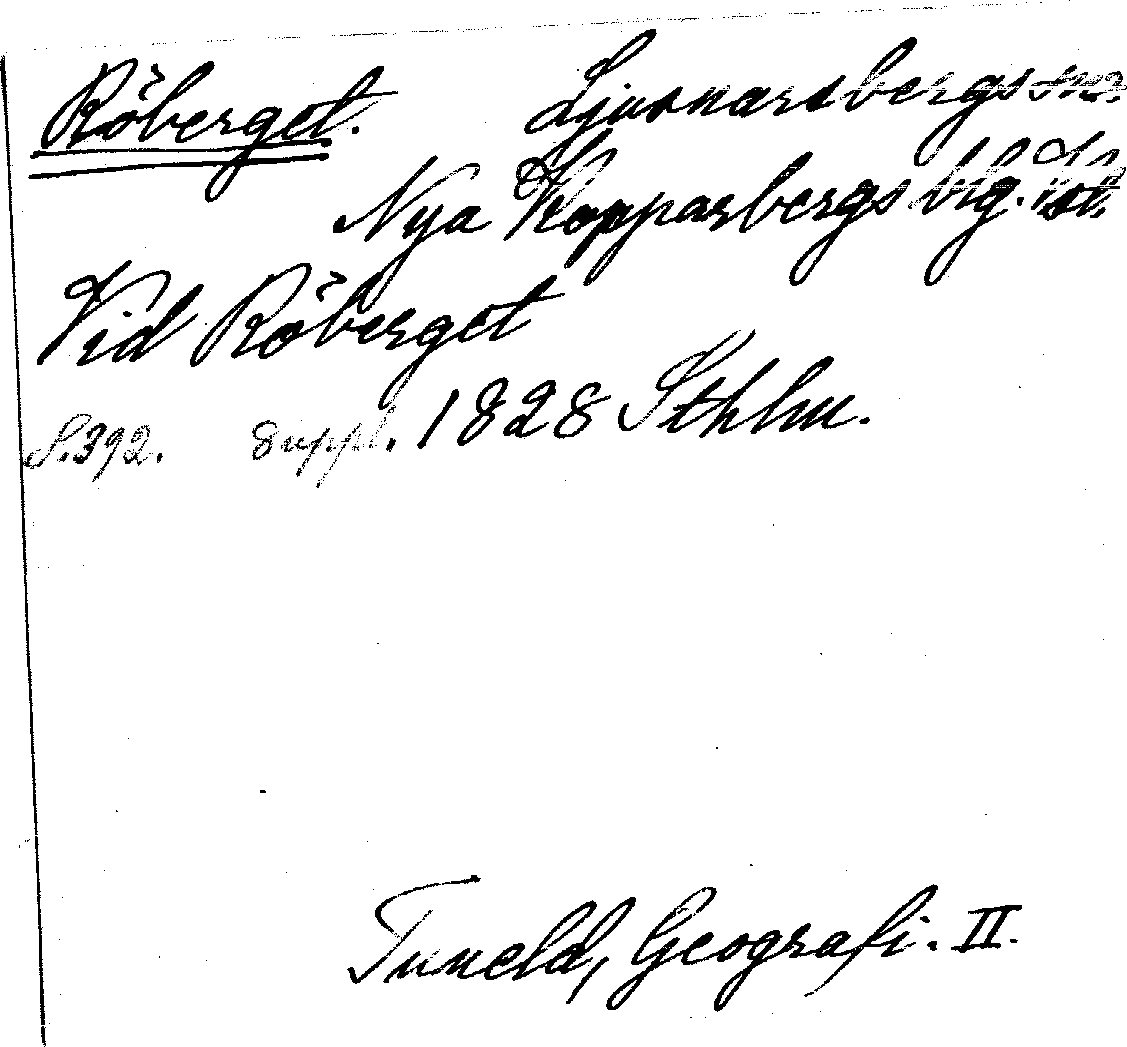 Röberget. Ljusnarsbergs sn.
Nya Kopparbergs blg.
Vid Röberget
S.392. Suppl. 1828 Sthlm.
Tuneld, Geografi. II.